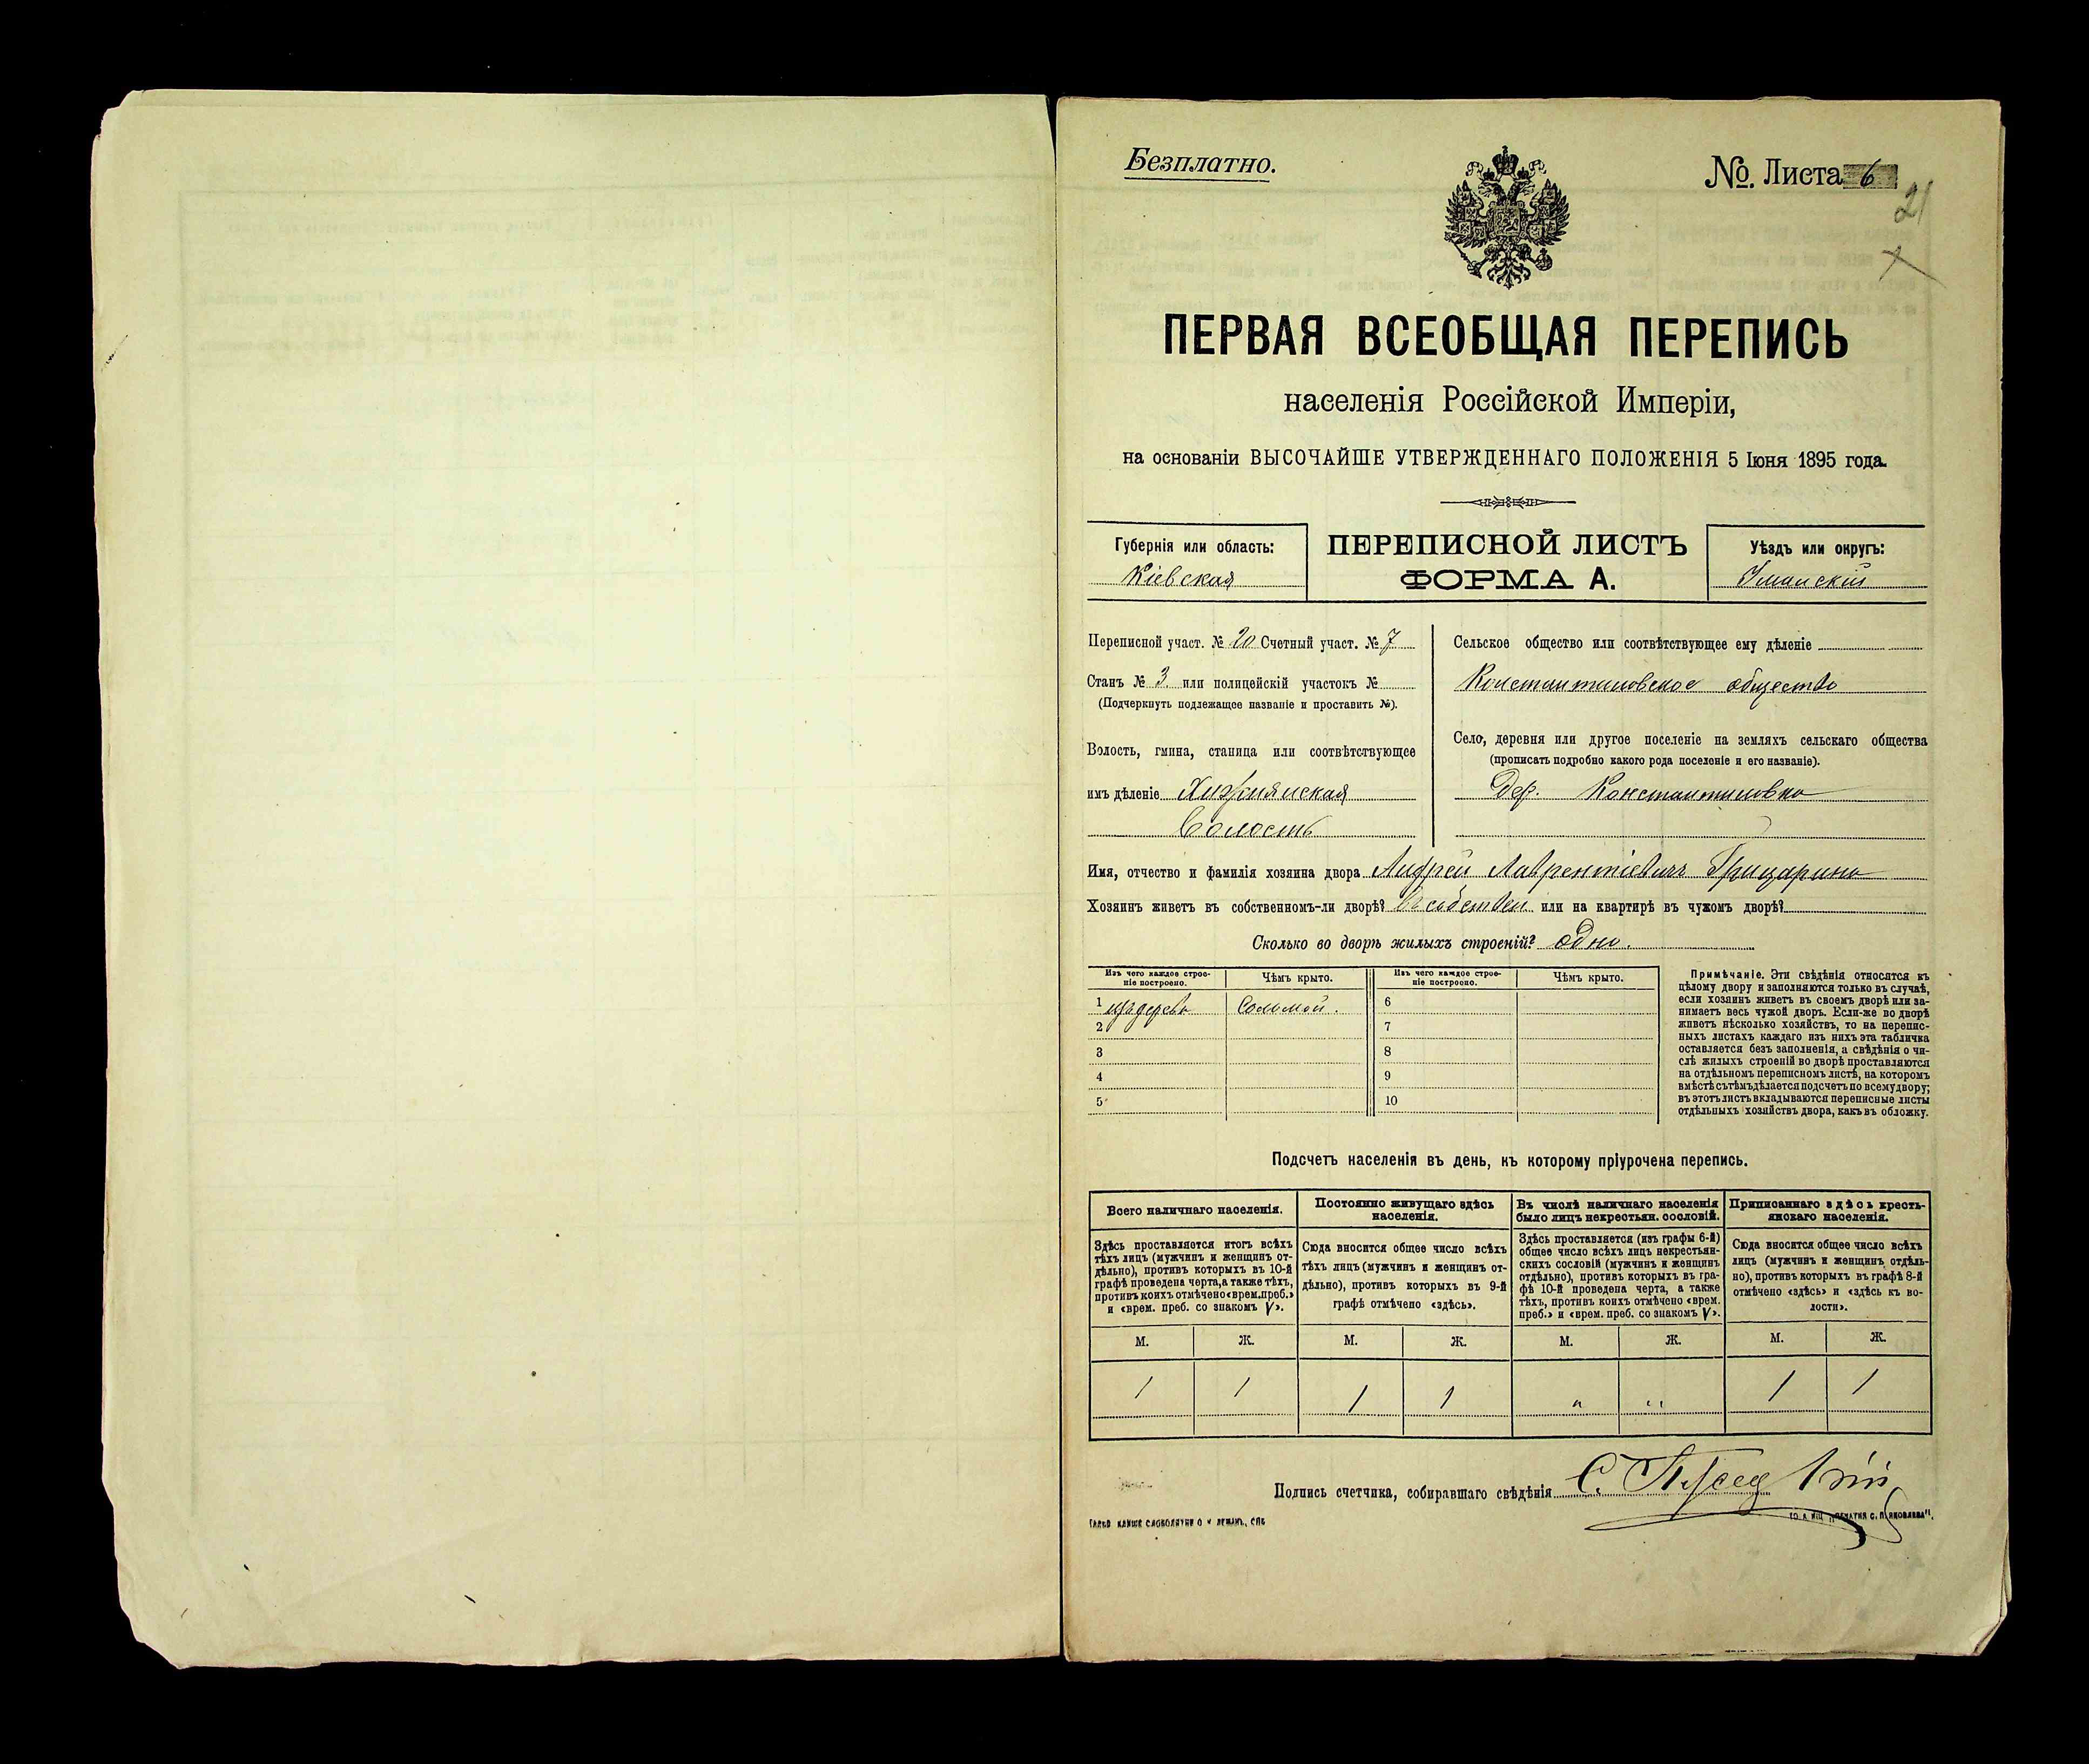 Безплатно.
№. Листа 6
21
ПЕРВАЯ ВСЕОБЩАЯ ПЕРЕПИСЬ
населенія Россійской Имперіи,
на основаніи ВЫСОЧАЙШЕ УТВЕРЖДЕННАГО ПОЛОЖЕНІЯ 5 Іюня 1895 года.
Губернія или область:
Кіевская
ПЕРЕПИСНОЙ ЛИСТЪ
ФОРМА А.
Уѣздъ или округъ:
Уманскій
Переписной участ. № 20 Счетный участ. № 7
Станъ № 3 или полицейскій участокъ №
(Подчеркнуть подлежащее названіе и проставить №).
Волость, гмина, станица или соотвѣтствующее
имъ дѣленіе Хижнянская
Волость
Сельское общество или соотвѣтствующее ему дѣленіе
Константиновское общество
Село, деревня или другое поселеніе на земляхъ сельскаго общества
(прописать подробно какого рода поселеніе и его названіе).
Дер. Константиновка
Имя, отчество и фамилія хозяина двора Андрей Лаврентіевичъ
Хозяинъ живетъ въ собственномъ-ли дворѣ? въ собствен или на квартирѣ въ чужомъ дворѣ?
Сколько во дворѣ жилыхъ строеній? одно.
Изъ чего каждое строе-
ніе построено.
Чѣмъ крыто.
Изъ чего каждое строе-
ніе построено.
Чѣмъ крыто.
1 изъ дерева Соломой. 6
2 7
3 8
4 9
5 10
Примѣчаніе. Эти свѣдѣнія относятся къ
цѣлому двору и заполняются только въ случаѣ,
если хозяинъ живетъ въ своемъ дворѣ или за-
нимаетъ весь чужой дворъ. Если-же во дворѣ
живетъ нѣсколько хозяйствъ, то на перепис-
ныхъ листахъ каждаго изъ нихъ эта табличка
оставляется безъ заполненія, а свѣдѣнія о чи-
слѣ жилыхъ строеній во дворѣ проставляются
на отдѣльномъ переписномъ листѣ, на которомъ
вмѣстѣ съ тѣмъ дѣлается подсчетъ по всему двору;
въ этотъ листъ вкладываются переписные листы
отдѣльныхъ хозяйствъ двора, какъ въ обложку.
Подсчетъ населенія въ день, къ которому пріурочена перепись.
Всего наличнаго населенія.
Здѣсь проставляется итогъ всѣхъ
тѣхъ лицъ (мужчинъ и женщинъ от-
дѣльно), противъ которыхъ въ 10-й
графѣ проведена черта, а также тѣхъ,
противъ коихъ отмѣчено «врем. преб.»
и «врем. преб. со знакомъ V».
Постоянно живущаго здѣсь
населенія.
Сюда вносится общее число всѣхъ
тѣхъ лицъ (мужчинъ и женщинъ от-
дѣльно), противъ которыхъ въ 9-й
графѣ отмѣчено «здѣсь».
Въ числѣ наличнаго населенія
было лицъ некрестьян. сословій.
Здѣсь проставляется (изъ графы 6-й)
общее число всѣхъ лицъ некрестьян-
скихъ сословій (мужчинъ и женщинъ
отдѣльно), противъ которыхъ въ гра-
фѣ 10-й проведена черта, а также
тѣхъ, противъ коихъ отмѣчено «врем.
преб.» и «врем. преб. со знакомъ V».
Приписаннаго здѣсь кресть-
янскаго населенія.
Сюда вносится общее число всѣхъ
лицъ (мужчинъ и женщинъ отдѣль-
но), противъ которыхъ въ графѣ 8-й
отмѣчено «здѣсь» и «здѣсь къ во-
лости».
М. Ж. М. Ж. М. Ж. М. Ж.
1 1 1 1 " " 1 1
Подпись счетчика, собиравшаго свѣдѣнія С.